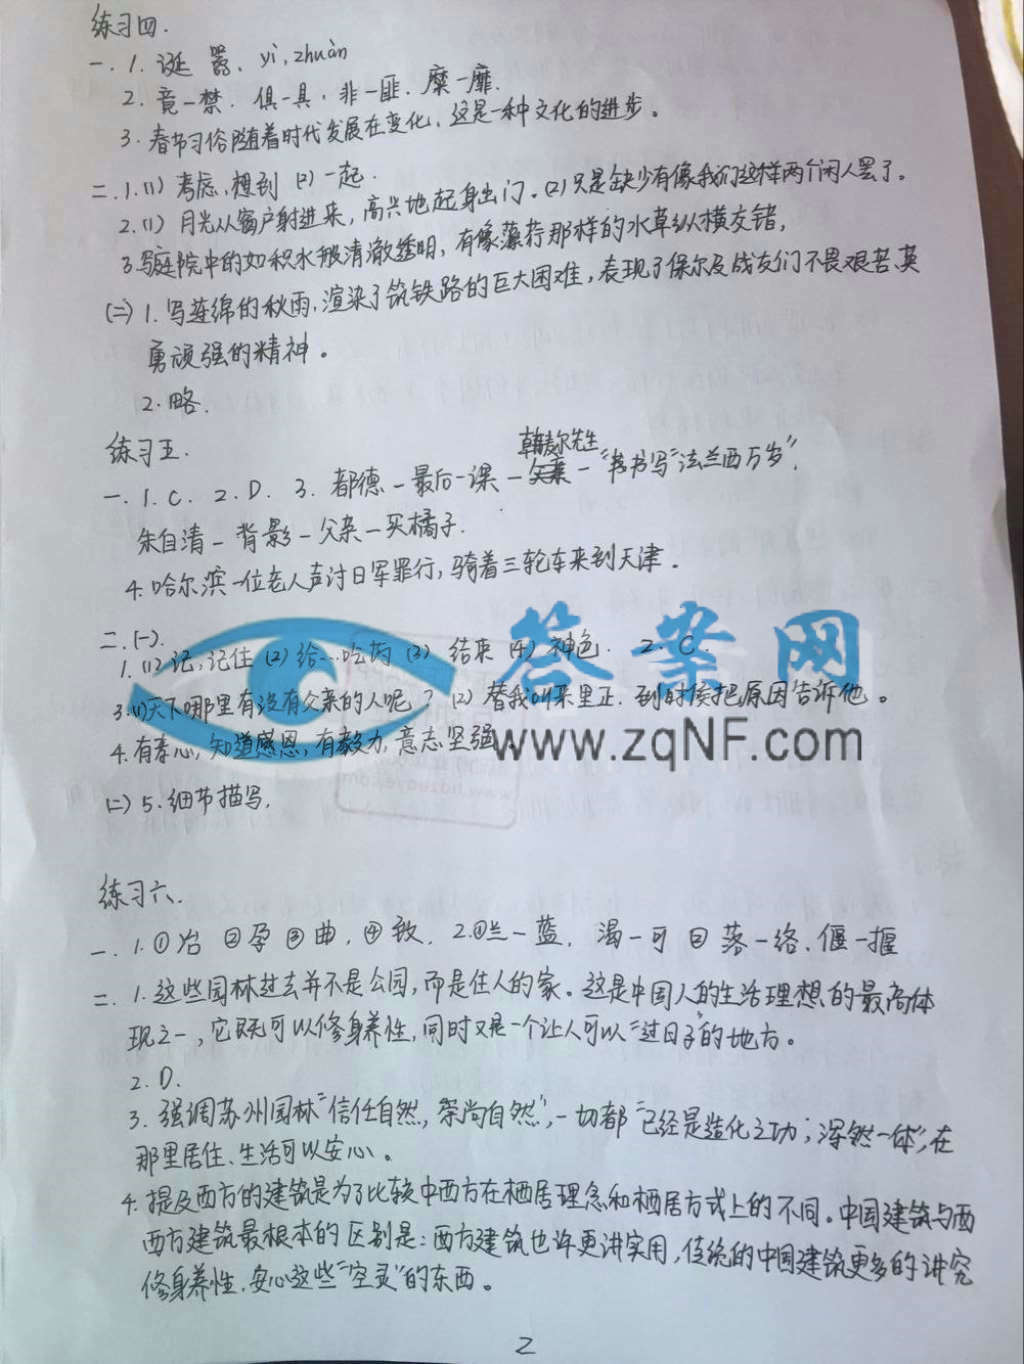 练习四.
一.1.诞 嚣、yì,zhuàn
2.竟一禁.俱一具.非一匪.糜一靡.
3.春节习俗随着时代发展在变化,这是一种文化的进步。
二.1.(1)考虑,想到 (2)一起.
2.(1)月光从窗户射进来,高兴地起身出门。(2)只是缺少有像我们这样两个闲人罢了。
3.写庭院中的如积水般清澈透明,有像藻荇那样的水草纵横交错,
(二)1.写连绵的秋雨,渲染了筑铁路的巨大困难,表现了保尔及战友们不畏艰苦、英
勇顽强的精神。
2.略.
练习五.
韩麦尔先生
一.1.C. 2.D. 3.都德–最后一课–父亲–"书写"法兰西万岁".
朱自清–背影–父亲–买橘子.
4.哈尔滨一位老人声讨日军罪行,骑着三轮车来到天津。
二.(一).
1.(1)记,记住 (2)给…吃药 (3)结束 (4)神色. 2.C.
3.(1)天下哪里有没有父亲的人呢?(2)替我叫来里正.到时候把原因告诉他。
4.有孝心,知道感恩,有毅力,意志坚强.
(二)5.细节描写.
答案网
www.zqNF.com
练习六.
一.1.①冶 ②孕 ③曲.④敛.2.①兰一蓝.渴一可 ②落一络.偃一揠
二.1.这些园林过去并不是公园,而是住人的家。这是中国人的生活理想的最高体
现之一,它既可以修身养性,同时又是一个让人可以"过日子"的地方。
2.D.
3.强调苏州园林"信任自然,崇尚自然",一切都"已经是造化之功,浑然一体",在
那里居住、生活可以安心。
4.提及西方的建筑是为了比较中西方在栖居理念和栖居方式上的不同。中国建筑与西
西方建筑最根本的区别是:西方建筑也许更讲实用,传统的中国建筑更多的讲究
修身养性,安心这些"空灵"的东西。
2